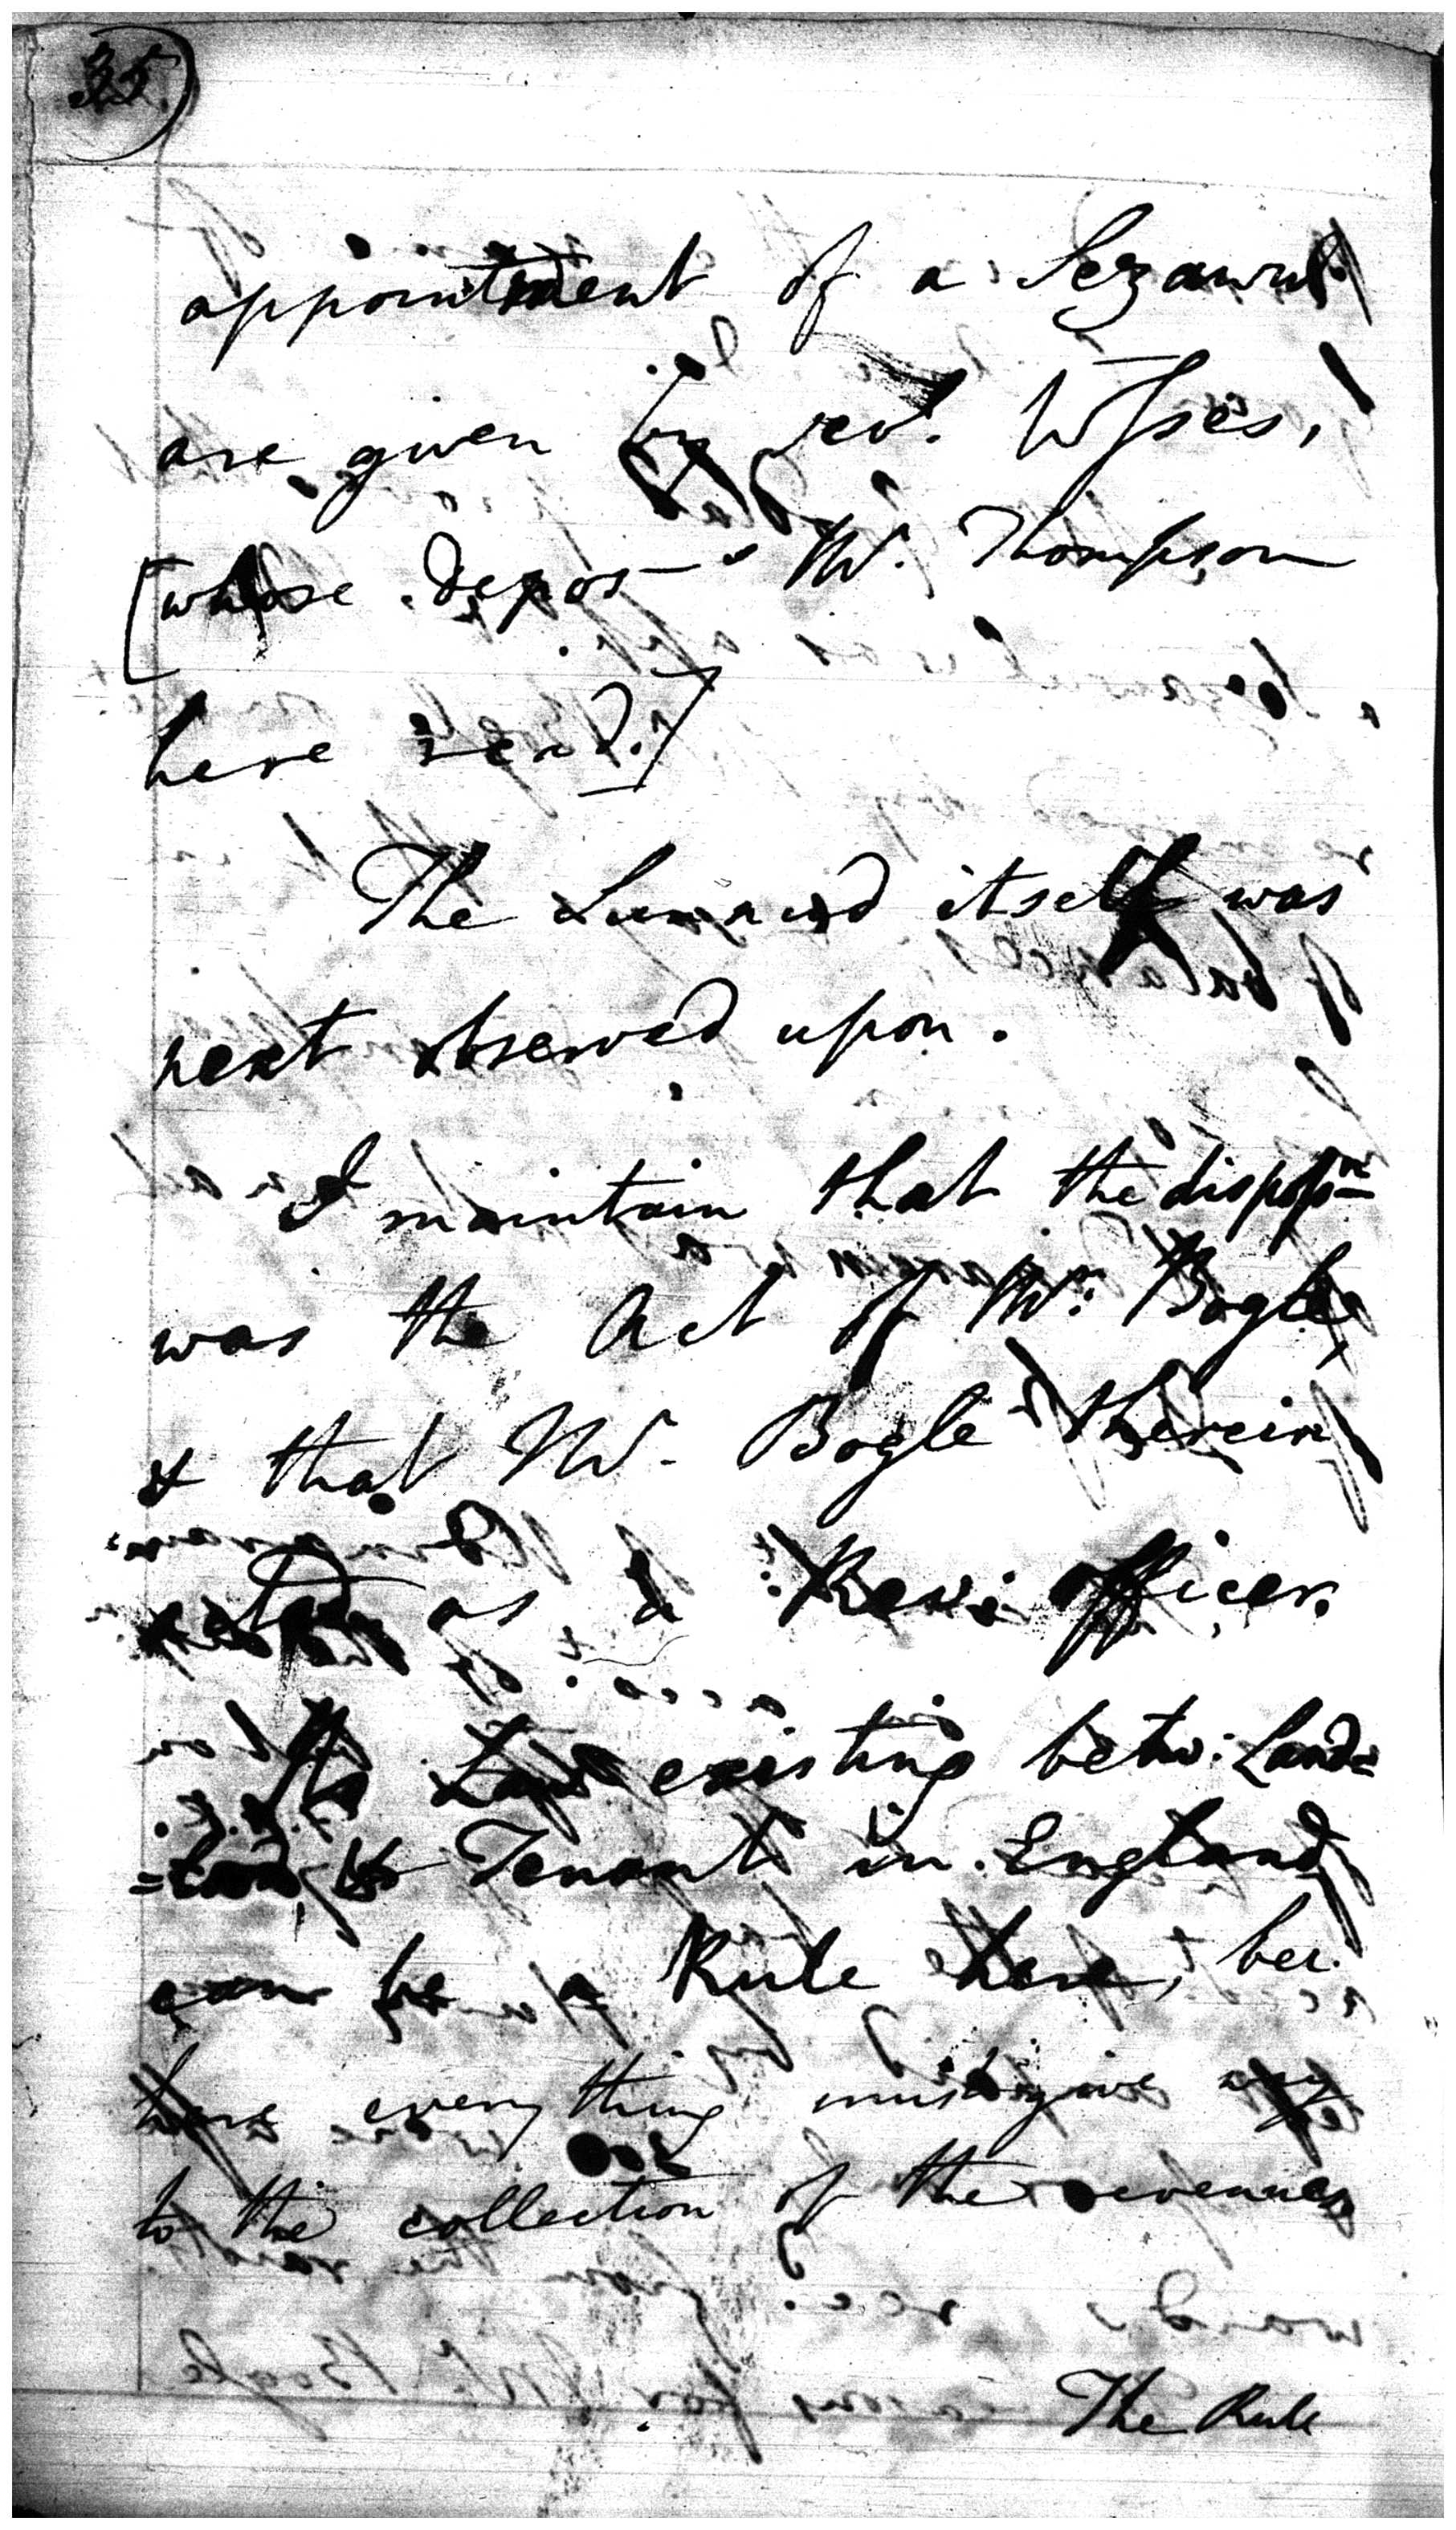 35
appointment of a Sezawul
are given by sev.l Wsses,
[whose depos— Mr. Thompson
here read.]
The Sunnud itself was
next observed upon.
I maintain that the disposs.n
was the Act of Mr. Bogle,
& that Mr. Bogle therein
acted as a Rev: officer.
Law existing betw: Land=
=lord & Tenant in England
can be a Rule here, bec.
here every thing must give way
to the collection of the revenues
The Rule